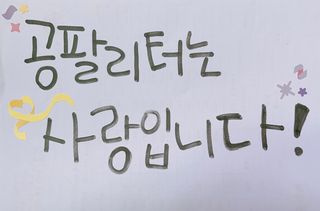 공팔리터는
사랑입니다!